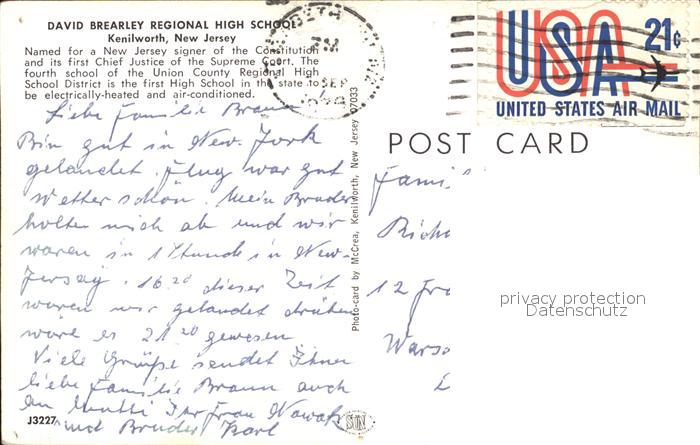 DAVID BREARLEY REGIONAL HIGH SCHOOL
Kenilworth, New Jersey
Named for a New Jersey signer of the Constitution
and its first Chief Justice of the Supreme Court. The
fourth school of the Union County Regional High
School District is the first High School in the state to
be electrically-heated and air-conditioned.
Liebe Familie Braun
Bin gut in New-York
gelandet. Flug war gut
Wetter schön. Mein Bruder
holten mich ab und wir
waren in 1 Stunde in New-
Jersey. 16 20 dieser Zeit
waren wir gelandet drüben
wäre es 21 20 gewesen
Viele Grüße sendet Ihnen
liebe Familie Braun auch
an Mutti Ihr Frau Nowak
und Bruder Karl
J3227
SUN
Photo-card by McCrea, Kenilworth, New Jersey 07033
PM
SEP
USA 21¢
UNITED STATES AIR MAIL
POST CARD
Fami
Richa
12 Fra
Warso
privacy protection
Datenschutz